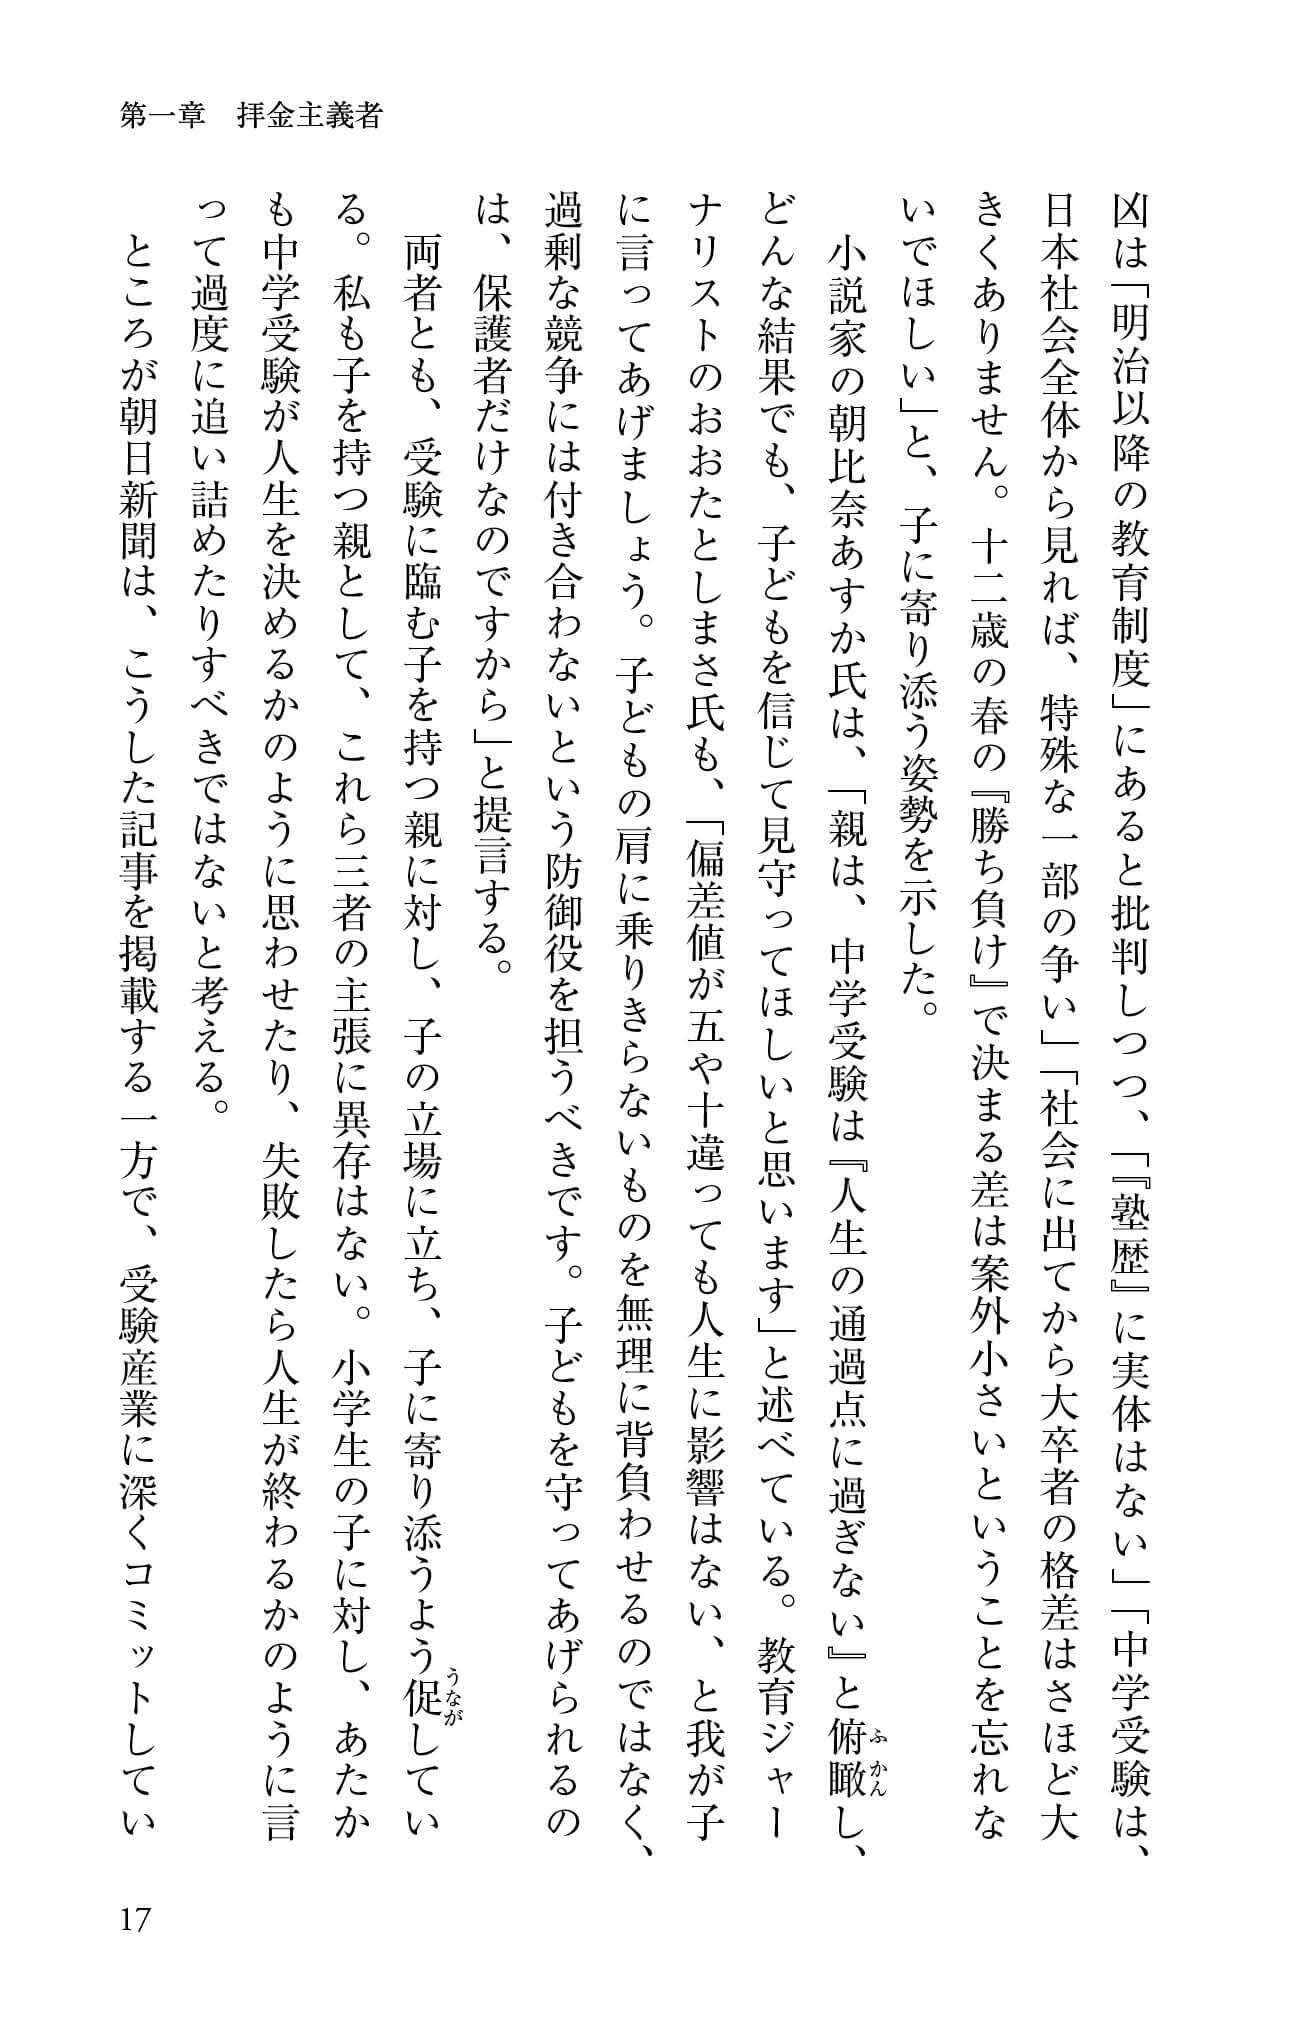 第一章　拝金主義者
凶は「明治以降の教育制度」にあると批判しつつ、「『塾歴』に実体はない」「中学受験は、
日本社会全体から見れば、特殊な一部の争い」「社会に出てから大卒者の格差はさほど大
きくありません。十二歳の春の『勝ち負け』で決まる差は案外小さいということを忘れな
いでほしい」と、子に寄り添う姿勢を示した。
　小説家の朝比奈あすか氏は、「親は、中学受験は『人生の通過点に過ぎない』と俯瞰し、
どんな結果でも、子どもを信じて見守ってほしいと思います」と述べている。教育ジャー
ナリストのおおたとしまさ氏も、「偏差値が五や十違っても人生に影響はない、と我が子
に言ってあげましょう。子どもの肩に乗りきらないものを無理に背負わせるのではなく、
過剰な競争には付き合わないという防御役を担うべきです。子どもを守ってあげられるの
は、保護者だけなのですから」と提言する。
　両者とも、受験に臨む子を持つ親に対し、子の立場に立ち、子に寄り添うよう促してい
る。私も子を持つ親として、これら三者の主張に異存はない。小学生の子に対し、あたか
も中学受験が人生を決めるかのように思わせたり、失敗したら人生が終わるかのように言
って過度に追い詰めたりすべきではないと考える。
　ところが朝日新聞は、こうした記事を掲載する一方で、受験産業に深くコミットしてい
17